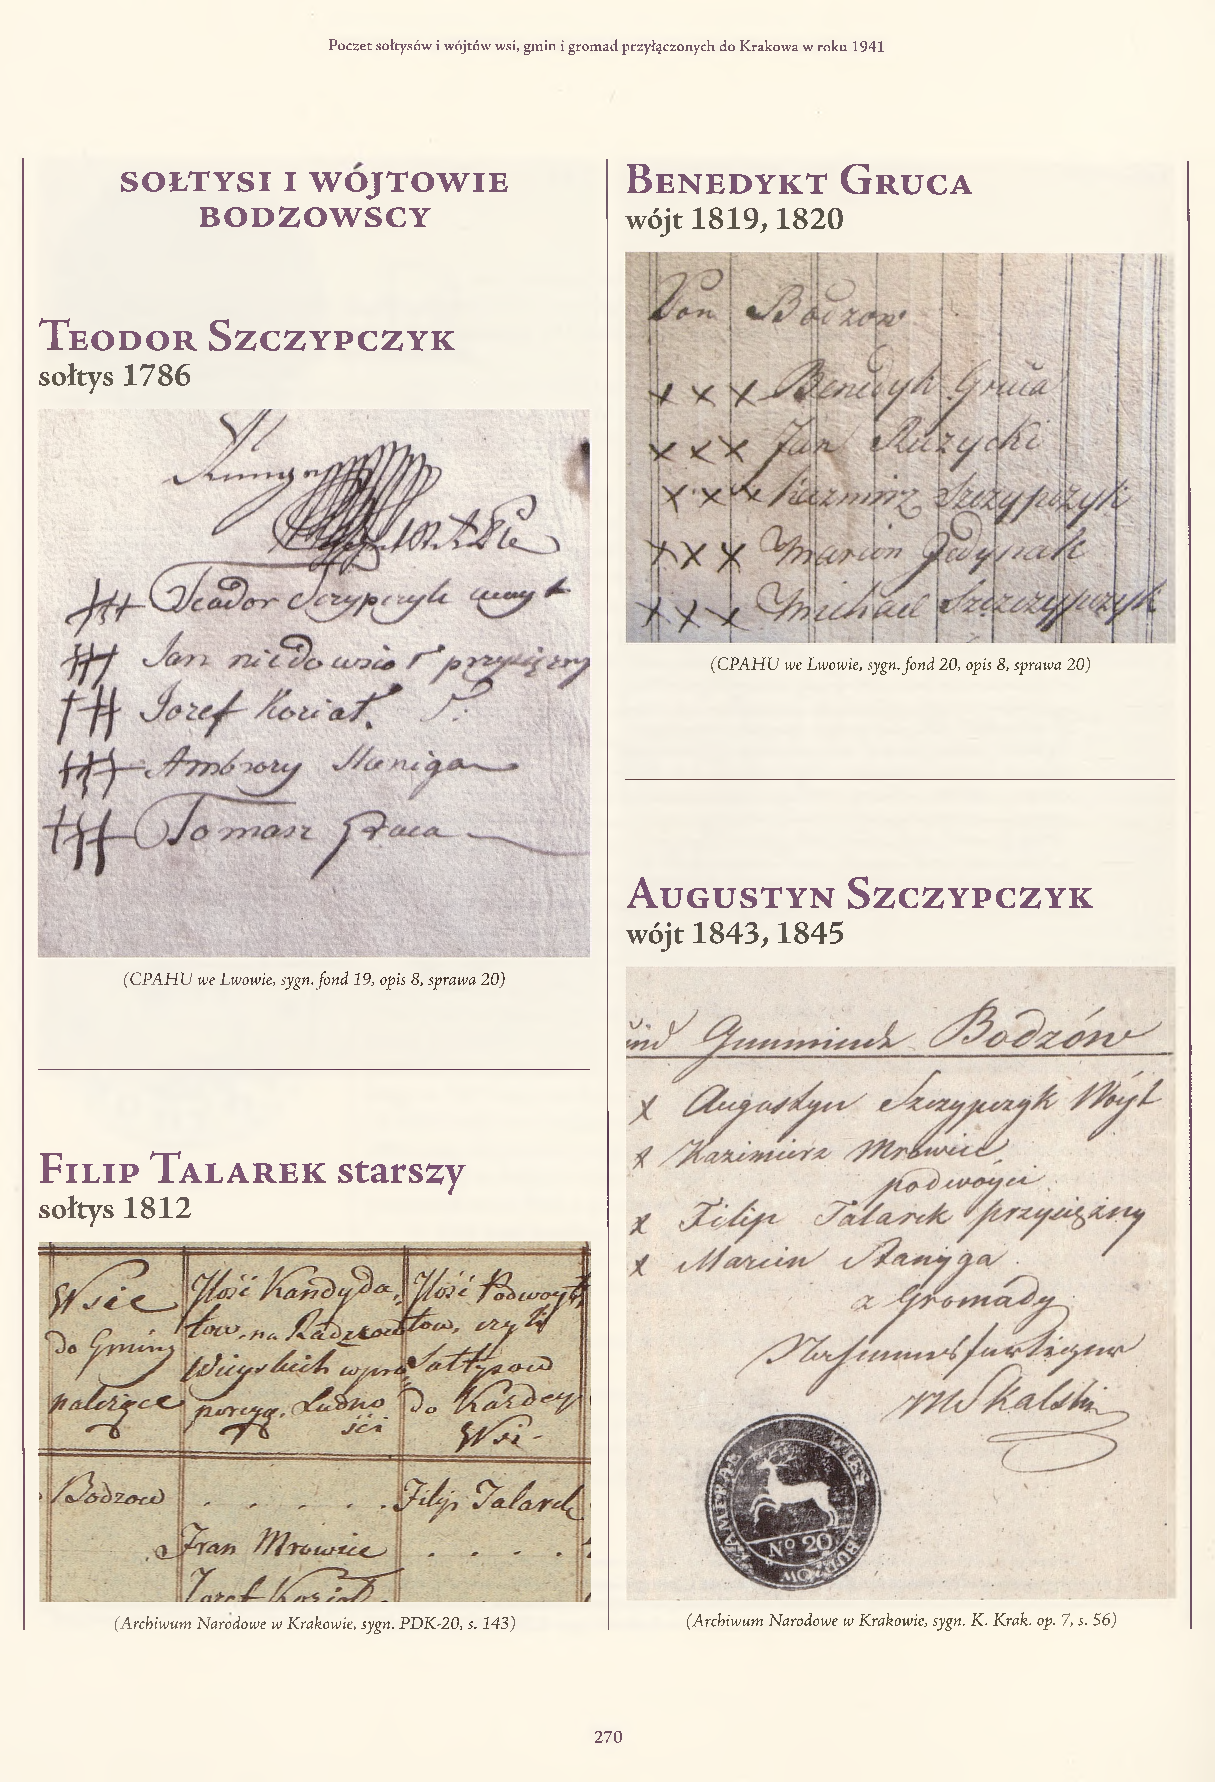 Poczet sołtysów i wójtów wsi, gmin i gromad przyłączonych do Krakowa w roku 1941
SOŁTYSI I WÓJTOWIE
BODZOWSCY
TEODOR SZCZYPCZYK
sołtys 1786
Teador Sczypczyk
Jan niedowsio
Jozef Koziat.
Ambrozy
Tomasz Graca
(CPAHU we Lwowie, sygn. fond 19, opis 8, sprawa 20)
FILIP TALAREK starszy
sołtys 1812
Wsie Ilość Kandyda, Ilość Podwoyt
do Gminy tow, na tow, czyli
Wieyskich Sołtysow
należące Ludno do Kazdey
ści Wsi-
Bodzow . . . . . Filip Talarek
Jran Mrowiec . . . .
Jozef Kozioł
(Archiwum Narodowe w Krakowie, sygn. PDK-20, s. 143)
BENEDYKT GRUCA
wójt 1819, 1820
Von Bodzow
x x x Benedyk Gruca
x x x Jan Ruzycki
x x x Kazmirz Szczypczyk
x x x Marcin Jedynak
x x x Michael Szczczypczyk
(CPAHU we Lwowie, sygn. fond 20, opis 8, sprawa 20)
AUGUSTYN SZCZYPCZYK
wójt 1843, 1845
Bodzów
x Augustyn Szczypczyk Wójt
x Kazimierz Mrowiec
podwójci
x Filip Talarek przysiężny
x Marcin Stanyga
z Gromady
Skalski
KAMERAL WIES BUDZOW
Nº 20
(Archiwum Narodowe w Krakowie, sygn. K. Krak. op. 7, s. 56)
270